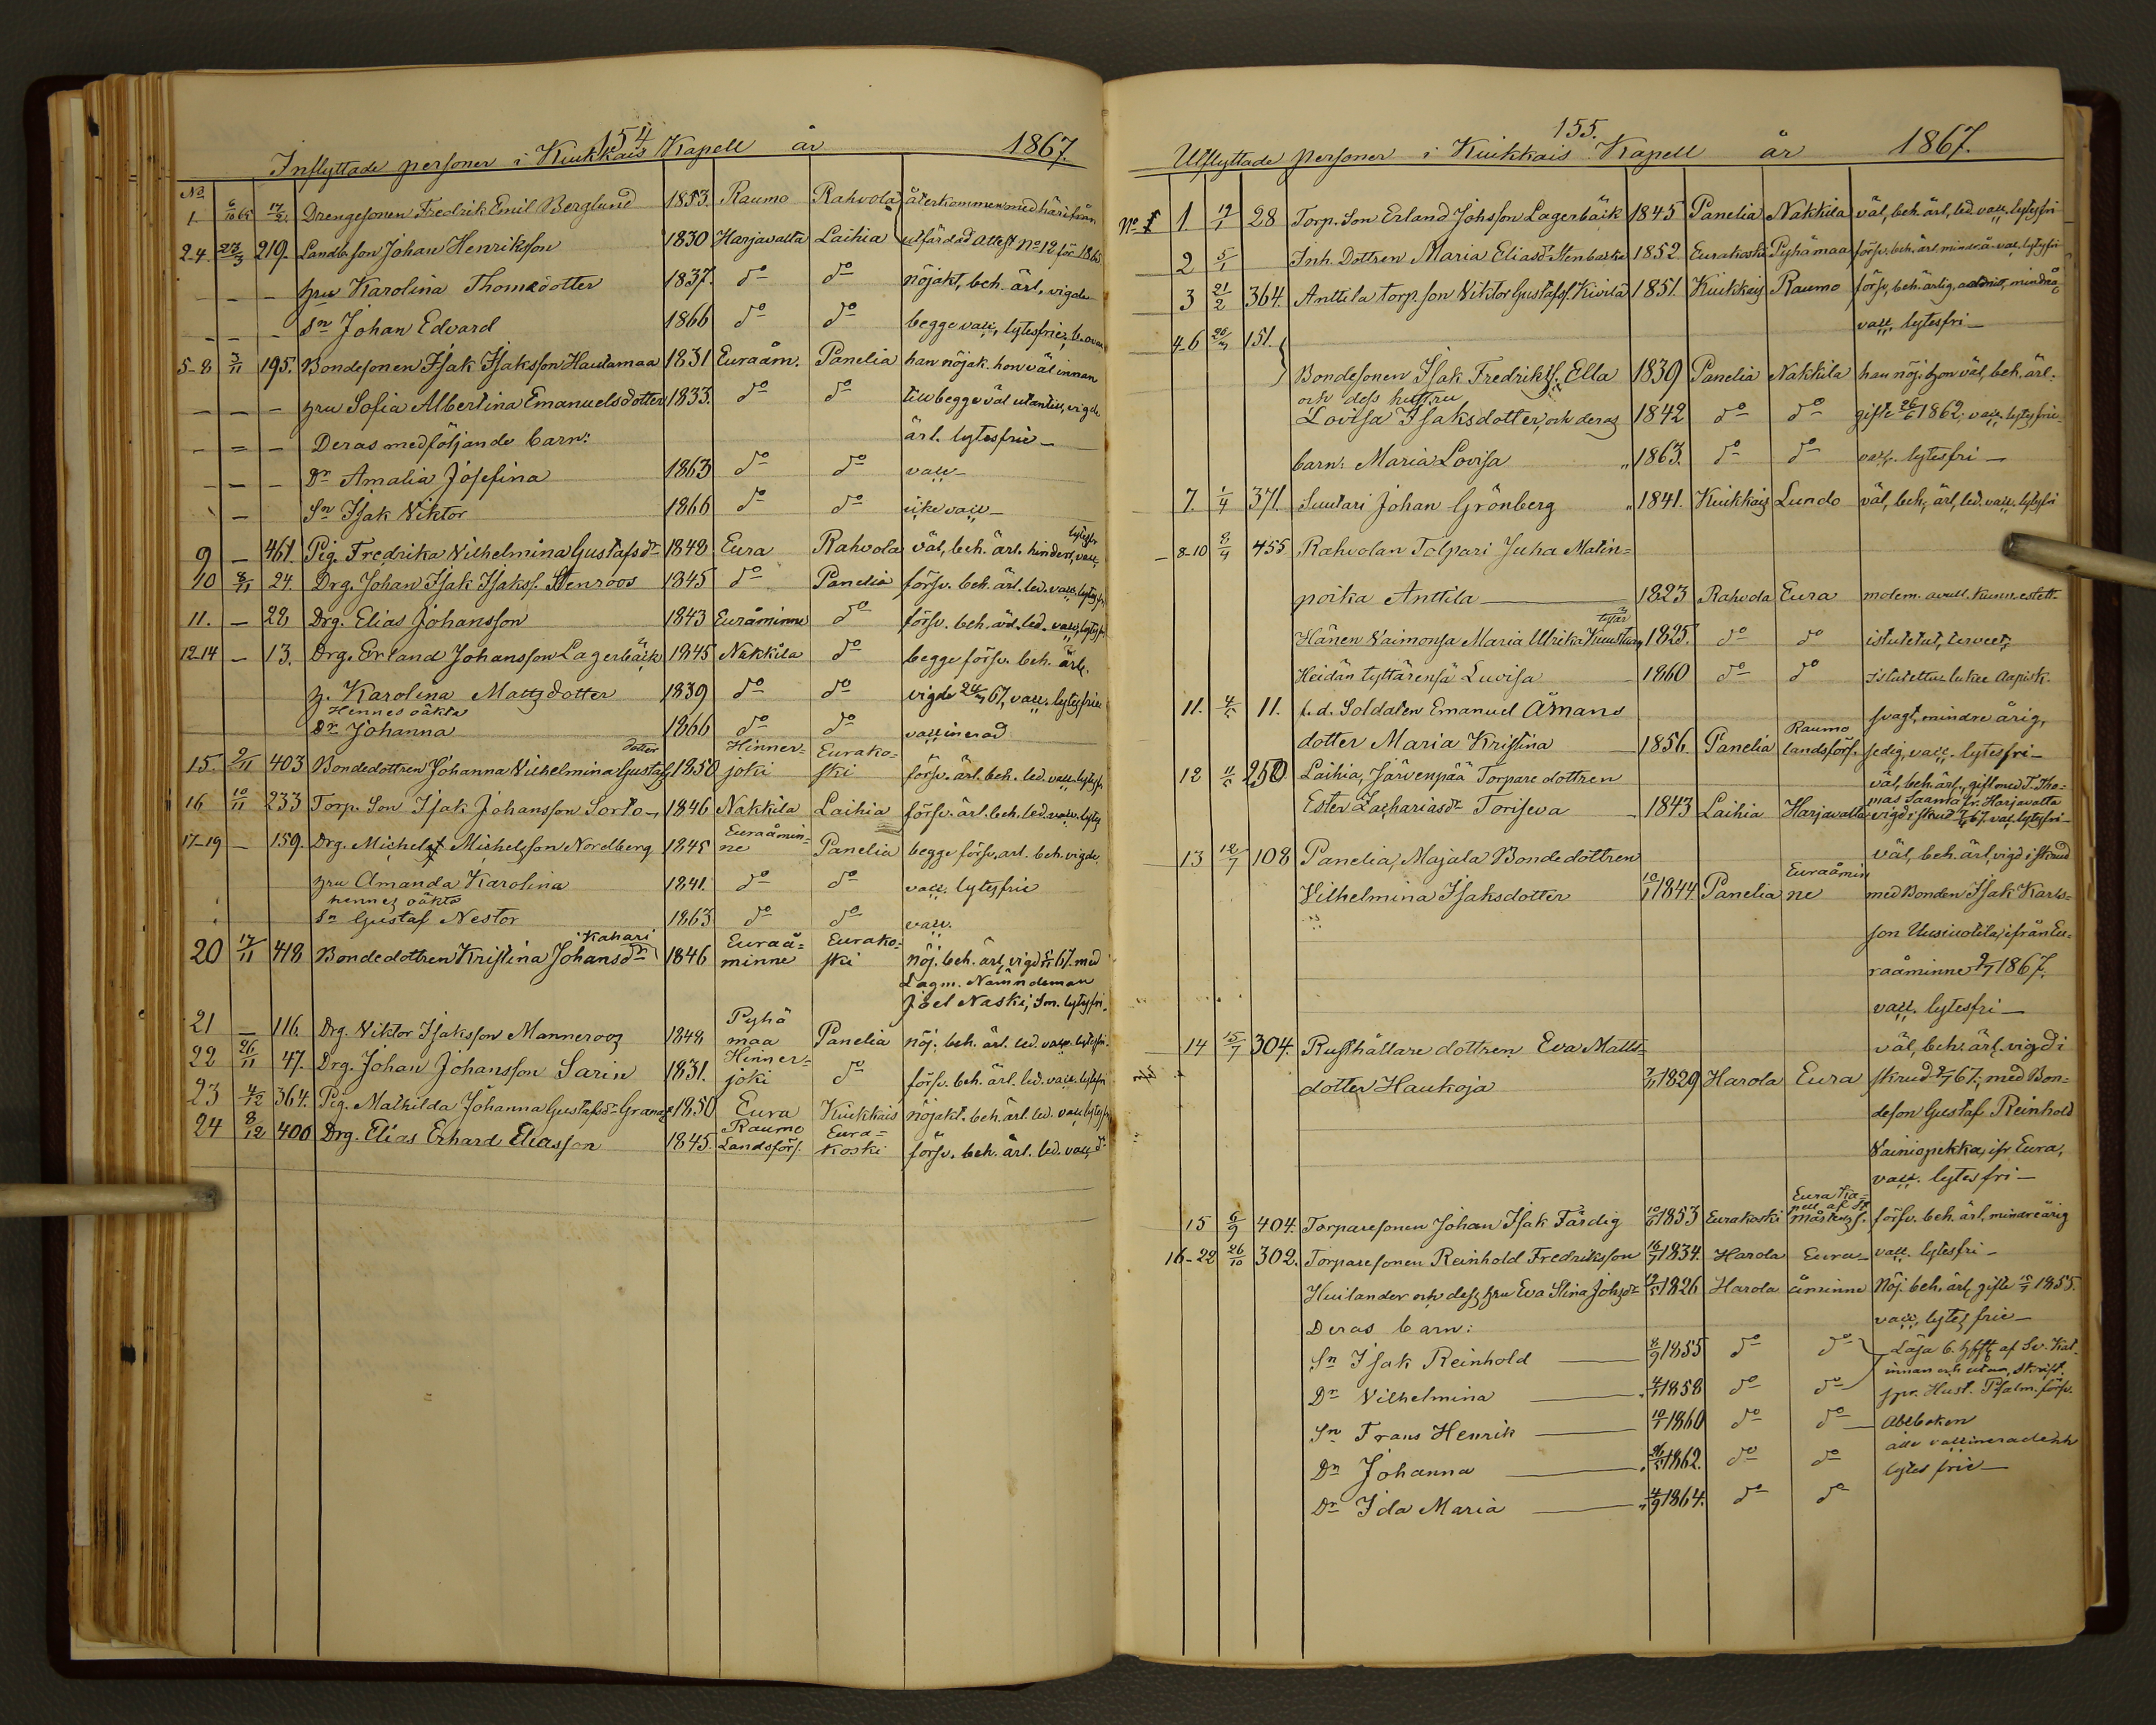 154
Inflyttade personer i Kiukkais Kapell år 1867.
No
1 6/10 65 17/2. Drengesonen Fredrik Emil Berglund 1853. Raumo Rahvola återkommen med härifrån
2-4. 23/3 219. Landb. son Johan Henriksson 1830 Harjavalta Laihia utfärdad Attest No 12 för 1865
— — — hru Karolina Thomædotter 1837. do do nöjakt, beh. ärl. vigde
— — — Sn Johan Edvard 1866 do do begge vacc. lytesfrie
5-8 3/11 195. Bondesonen Isak Isaksson Hautamaa 1831 Euraåm. Panelia han nöjak. hon väl innan
— — — hru Sofia Albertina Emanuelsdotter 1833. do do till begge väl utantill, vigde
— — — Deras medföljande barn: ärl. lytesfrie —
— — — Dr Amalia Josefina 1863 do do vacc —
— Sn Isak Viktor 1866 do do icke vacc —
9 — 461. Pig. Fredrika Vilhelmina Gustafsdr 1848 Eura Rahvola väl, beh. ärl. hinderl, vacc, lytesfr
10 8/11 24. Drg. Johan Isak Isakss. Stenroos 1845 do Panelia försv. beh. ärl. led. vacc. lytesfr
11. — 28 Drg. Elias Johansson 1843 Euråminne do försv. beh. ärl. led. vacc, lytesfr
12-14 — 13. Drg. Erland Johansson Lagerbäck 1845 Nakkila do begge försv. beh. ärl.
h. Karolina Mattsdotter 1839 do do vigde 24/3 67, vacc. lytesfrie
Hennes oäkta
Dr Johanna 1866 do do vaccinerad
15. 9/11 403 Bondedottren Johanna Vilhelmina Gustafs dotter 1850 Hinner= joki Eurako= ski försv. ärl. beh. led. vacc. lytesfr
16 10/11 233 Torp. Son Isak Johansson Sorto — 1846 Nakkila Laihia försv. ärl. beh. led. vacc. lytes
17-19 — 159. Drg. Michel Michelsson Nordberg 1845 Euraåmin= ne Panelia begge försv. ärl. beh. vigde,
hru Amanda Karolina 1841. do do vacc. lytesfrie
hennes oäkta
Sn Gustaf Nestor 1863 do do vacc.
20 17/11 418 Bondedottren Kristina Johansdr Kahari 1846 Euraå= minne Eurako= ski nöj. beh. ärl, vigd 67. med
Lagm. Nämndeman
Joel Naski, Sm. lytesfri.
21 — 116. Drg. Viktor Isaksson Manneroos 1848 Pyhä maa Panelia nöj. beh. ärl. led. vacc. lytesfri.
22 26/11 47. Drg. Johan Johansson Sarin 1831. Hinner= joki do försv. beh. ärl. led. vacc. lytesfr
23 4/12 364. Pig. Mathilda Johanna Gustafsdr Granqv 1850 Eura Kiukkais nöjakt. beh. ärl. led. vacc, lytesfr
24 8/12 400 Drg. Elias Erhard Eliasson 1845. Raumo Landsförs. Eura= koski försv. beh. ärl. led. vacc, do
155.
Utflyttade personer i Kiukkais Kapell år 1867.
No 1 17/1 28 Torp. Son Erland Johsson Lagerbäck 1845 Panelia Nakkila väl, beh. ärl, led. vacc. lytesfri
2 5/1 Inh. Dottren Maria Eliasdr Stenbacka 1852 Eurakoski Pyhämaa försv. beh. ärl. mindreå. vac. lytesfri
3 21/2 364. Anttila torp. son Viktor Gustafss. Kivilä 1851. Kiukkais Raumo försv, beh. ärlig, mindreå.
vacc. lytesfri —
4-6 26/3 151.
Bondesonen Isak Fredrikss. Ella 1839 Panelia Nakkila han nöj. hon väl, beh. ärl.
och dess hustru
Lovisa Isaksdotter, och deras 1842 do do gifte 26/6 1862, vacc. lytesfrie
barn: Maria Lovisa „ 1863. do do vacc. lytesfri —
7. 1/4 371. Suutari Johan Grönberg „ 1841. Kiukkais Lundo väl, beh, ärl, led. vacc. lytesfri
8-10 8/4 455 Rahvolan Talpari Juha Matin=
poika Anttila — 1823 Rahvola Eura molem. avull. kunn. estett.
Hänen Vaimonsa Maria Ulrika Kuusturs tytär 1825. do do istutetut, terveet,
Heidän tyttärensä Luvisa — 1860 do do istutettu lukee Aapisk.
11. 4/5 11. f. d. Soldaten Emanuel Åmans svagt, mindre årig,
dotter Maria Kristina — 1856. Panelia Raumo landsförs. sedig, vacc. lytesfri —
12 11/5 250 Laihia, Järvenpää Torpare dottren väl, beh. ärl., gift med T. Tho=
mas Saama fr. Harjavalta
Ester Zachariasdr Torisewa — 1843 Laihia Harjavalta vigd i skrud 67. vac. lytesfri —
13 12/7 108 Panelia, Majala Bondedottren väl, beh. ärl, vigd i skrud
Vilhelmina Isaksdotter 10/1 1844 Panelia Euraåmin ne med Bonden Isak Karls=
son Uusiuotila, ifrån Eu=
raåminne 9/7 1867.
vacc. lytesfri —
14 15/7 304. Rusthållare dottren Eva Matts= väl, beh. ärl. vigd i
dotter Haukoja 7/11 1829 Harola Eura skrud 9/7 67., med Bon=
deson Gustaf Reinhold
Vainiopekka, ifr Eura,
vacc. lytesfri —
15 6/9 404. Torparesonen Johan Isak Färdig 10/6 1853 Eurakoski Eura Ka= pell af St Mårtens f. försv. beh. ärl, mindreårig
16-22 26/10 302. Torparesonen Reinhold Fredriksson 16/7 1834. Harola Eura= vacc. lytesfri —
Huilander och dess hru Eva Stina Johsdr 12/5 1826 Harola åminne Nöj. beh. ärl, gifte 15/7 1855.
Deras barn: vacc, lytes frie —
Sn Isak Reinhold — 8/9 1855 do do Läsa 6. hfft af Sv. Kat.
innan och utan, skrift.
Dr Vilhelmina — 4/4 1858 do do spr. Hust. Psalm. försv.
Sn Frans Henrik — 10/1 1860 do do — Abcboken
Dr Johanna — 26/5 1862. do do alla vaccinerade och
lytes frie —
Dr Ida Maria — 4/9 1864. do do